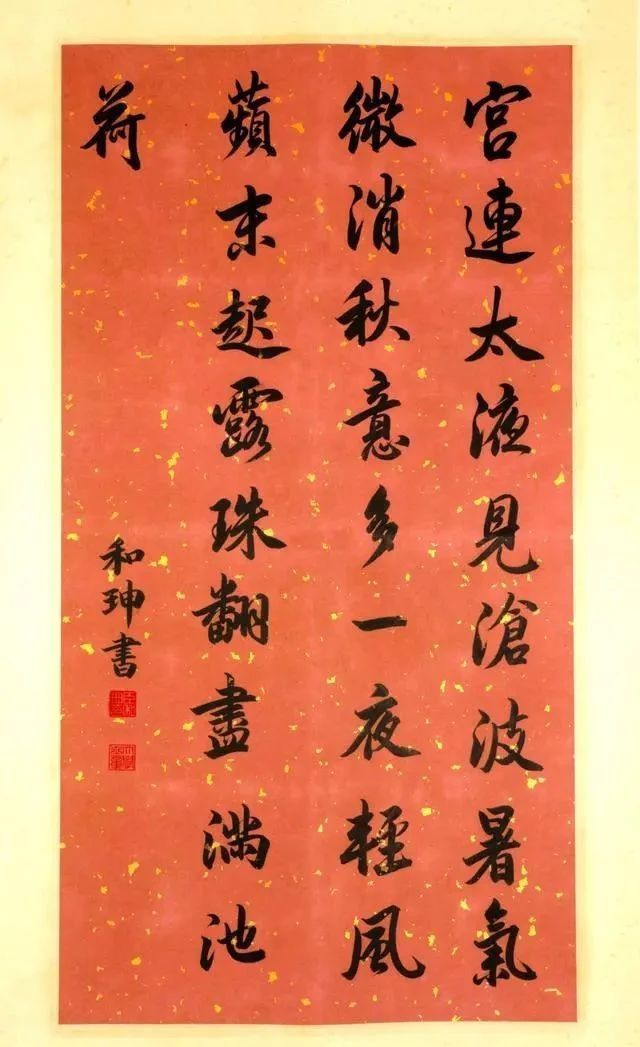 宮連太液見滄波暑氣
微消秋意多一夜輕風
蘋末起露珠翻盡滿池
荷
和珅書